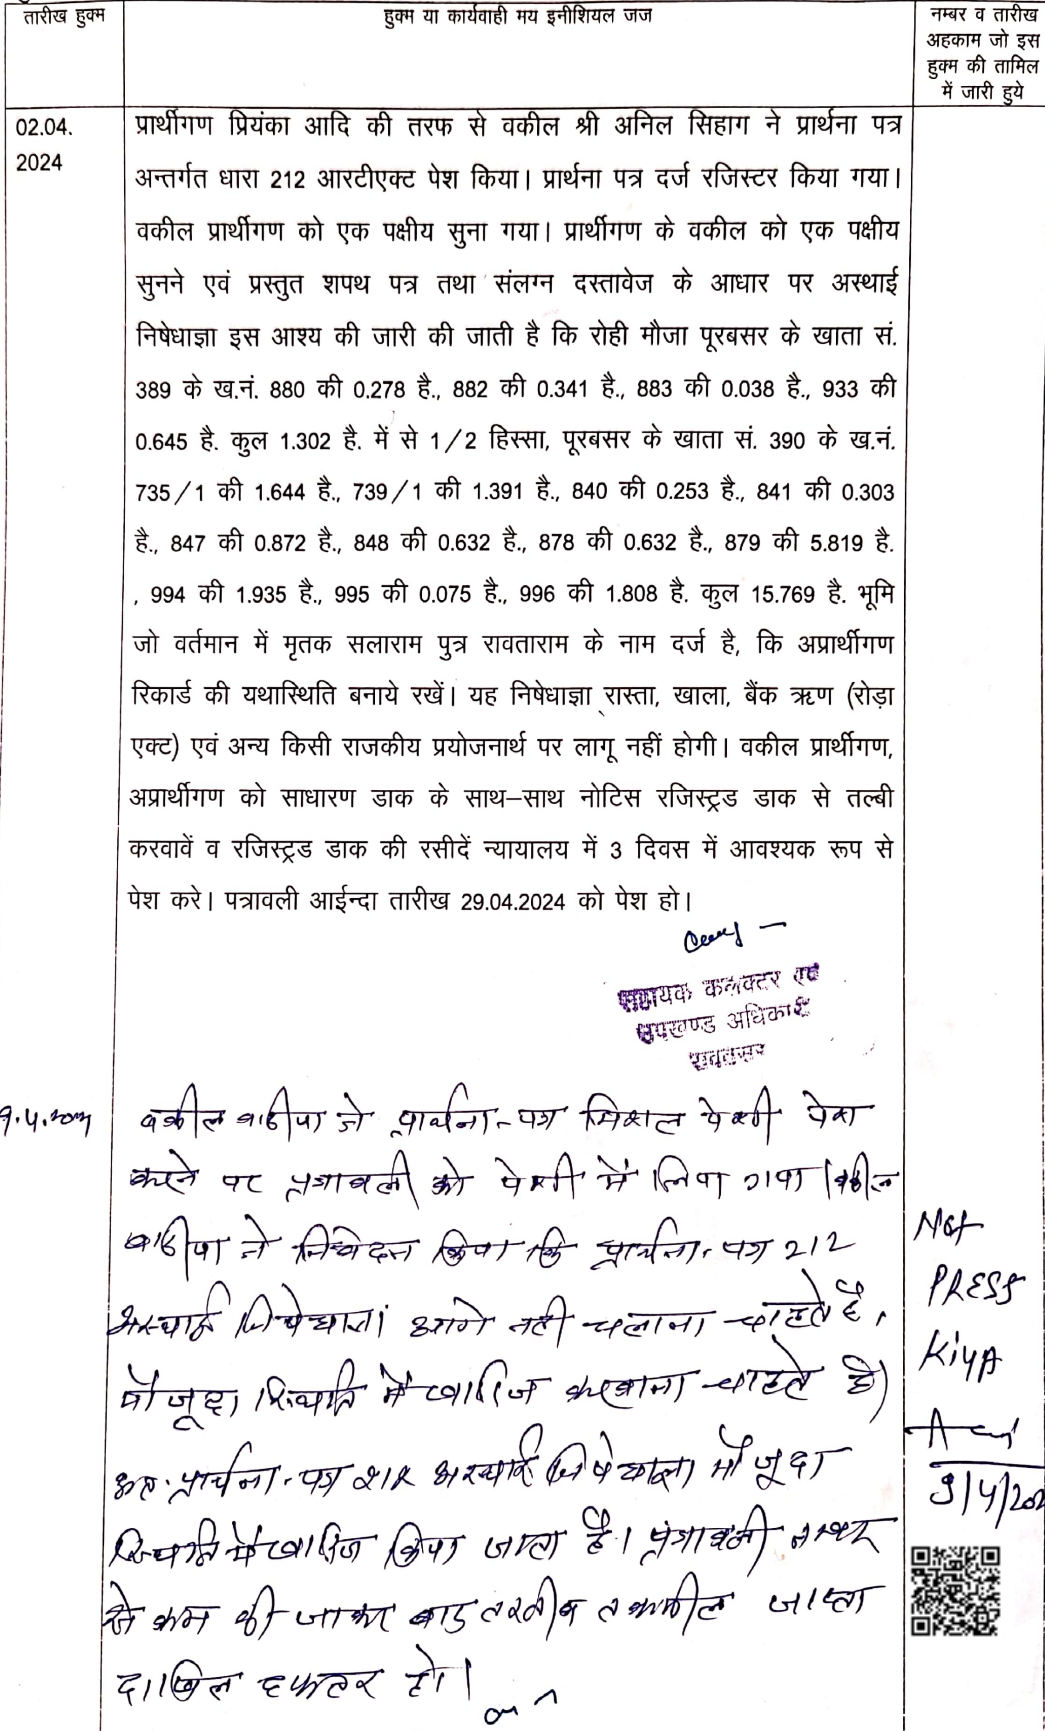 तारीख हुक्म
हुक्म या कार्यवाही मय इनीशियल जज
नम्बर व तारीख
अहकाम जो इस
हुक्म की तामिल
में जारी हुये
02.04.
2024
प्रार्थीगण प्रियंका आदि की तरफ से वकील श्री अनिल सिहाग ने प्रार्थना पत्र
अन्तर्गत धारा 212 आरटीएक्ट पेश किया। प्रार्थना पत्र दर्ज रजिस्टर किया गया।
वकील प्रार्थीगण को एक पक्षीय सुना गया। प्रार्थीगण के वकील को एक पक्षीय
सुनने एवं प्रस्तुत शपथ पत्र तथा संलग्न दस्तावेज के आधार पर अस्थाई
निषेधाज्ञा इस आश्य की जारी की जाती है कि रोही मौजा पूरबसर के खाता सं.
389 के ख.नं. 880 की 0.278 है., 882 की 0.341 है., 883 की 0.038 है., 933 की
0.645 है. कुल 1.302 है. में से 1/2 हिस्सा, पूरबसर के खाता सं. 390 के ख.नं.
735/1 की 1.644 है., 739/1 की 1.391 है., 840 की 0.253 है., 841 की 0.303
है., 847 की 0.872 है., 848 की 0.632 है., 878 की 0.632 है., 879 की 5.819 है.
, 994 की 1.935 है., 995 की 0.075 है., 996 की 1.808 है. कुल 15.769 है. भूमि
जो वर्तमान में मृतक सलाराम पुत्र रावताराम के नाम दर्ज है, कि अप्रार्थीगण
रिकार्ड की यथास्थिति बनाये रखें। यह निषेधाज्ञा रास्ता, खाला, बैंक ऋण (रोड़ा
एक्ट) एवं अन्य किसी राजकीय प्रयोजनार्थ पर लागू नहीं होगी। वकील प्रार्थीगण,
अप्रार्थीगण को साधारण डाक के साथ–साथ नोटिस रजिस्ट्रड डाक से तल्बी
करवावें व रजिस्ट्रड डाक की रसीदें न्यायालय में 3 दिवस में आवश्यक रूप से
पेश करे। पत्रावली आईन्दा तारीख 29.04.2024 को पेश हो।
सहायक कलक्टर एवं
उपखण्ड अधिकारी
रावतसर
वकील वादीया ने प्रार्थना-पत्र मिसल पेशी पेश
करने पर पत्रावली को पेशी में लिया गया। वकील
वादीया ने निवेदन किया कि प्रार्थना-पत्र 212
अस्थाई निषेधाज्ञा आगे नही चलाना चाहते है,
मौजूदा स्थिति में खारिज करवाना चाहते है।
अतः प्रार्थना-पत्र 212 अस्थाई निषेधाज्ञा मौजूदा
स्थिति में खारिज किया जाता है। पत्रावली नम्बर
से कम की जाकर बाद तरतीब तकमील जाप्ता
दाखिल दफ्तर हो।
Not
PRESS
Kiya
9/4/202